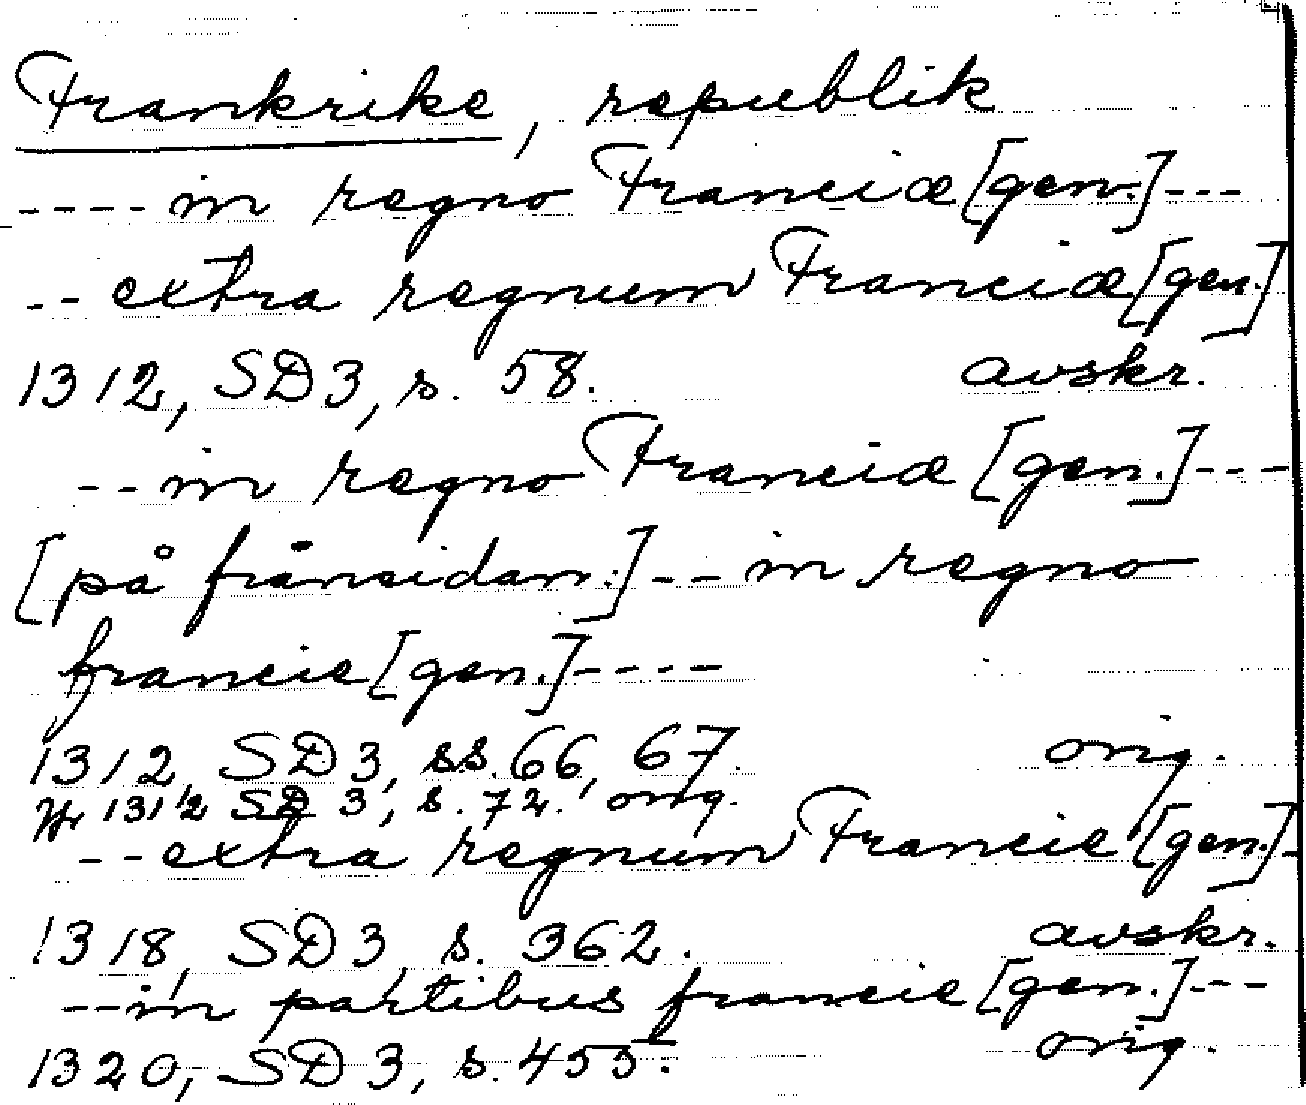 Frankrike, republik
---- in regno Franciæ [gen.] ---
-- extra regnum Franciæ [gen.]
1312, SD 3, s. 58. avskr.
-- in regno Franciæ [gen.] ---
[på frånsidan:] -- in regno
francie [gen.] ----
1312, SD 3, ss. 66, 67. orig.
1312 SD 3, s. 72. orig.
-- extra regnum Francie [gen.] -
1318, SD 3, s. 362. avskr.
-- in partibus francie [gen.] ---
1320, SD 3, s. 455. orig.